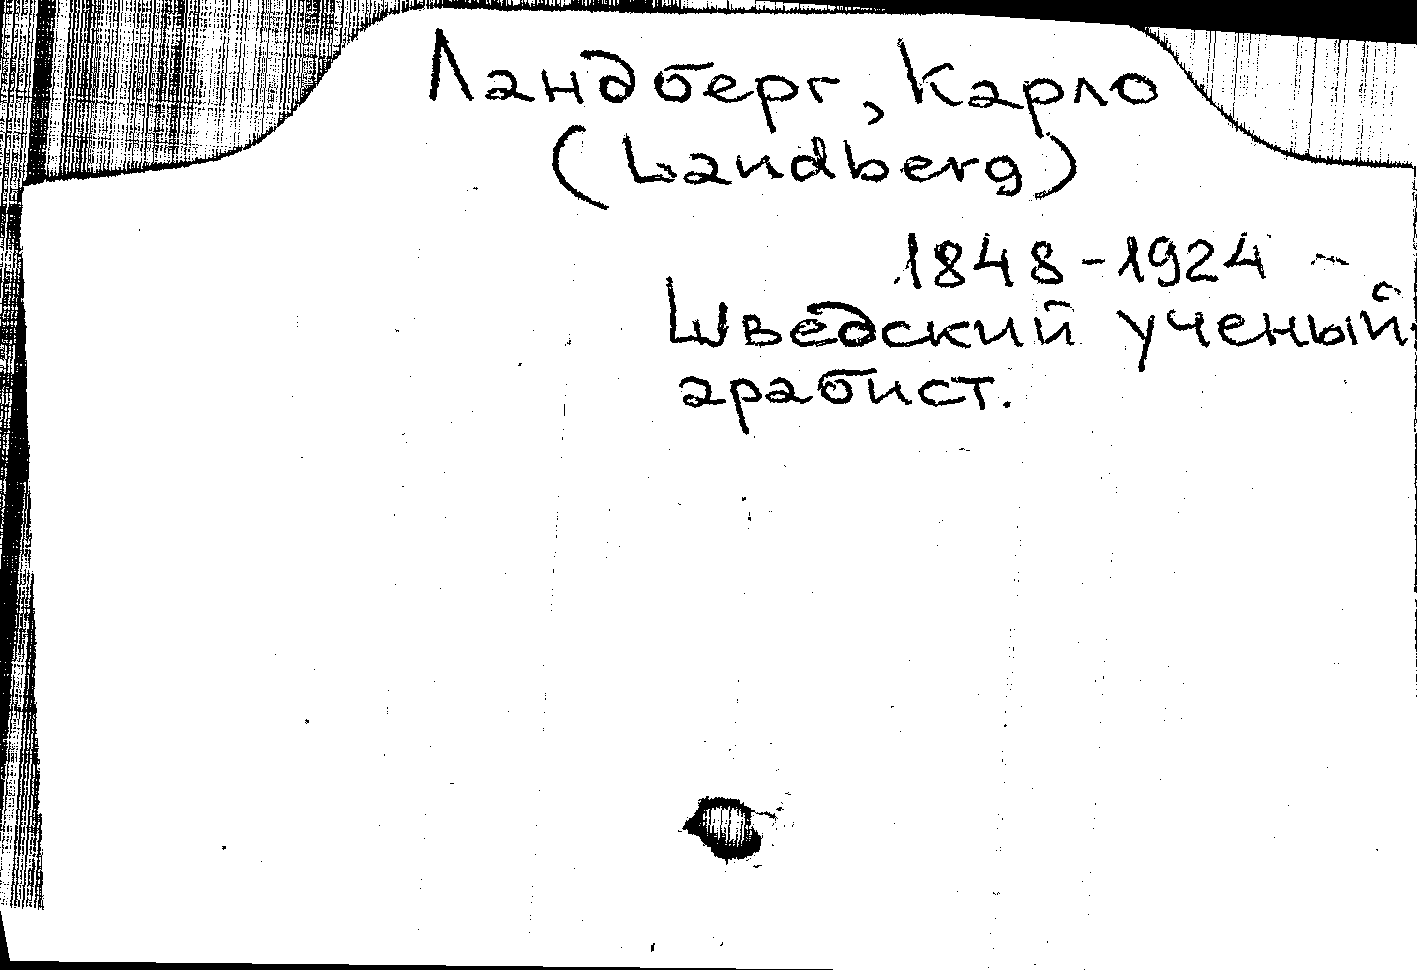 Ландберг, Карло
(Landberg)
1848-1924 -
Шведский ученый-
арабист.